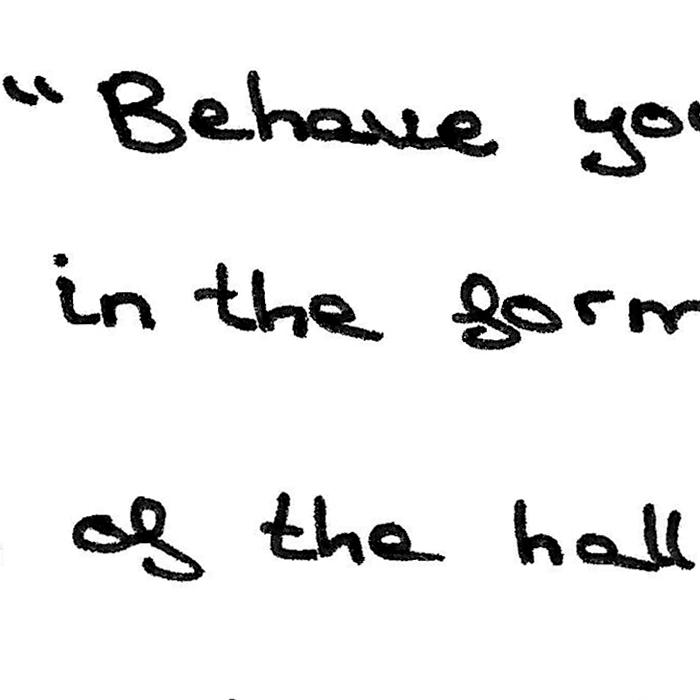 “Behave you
in the form
of the hall